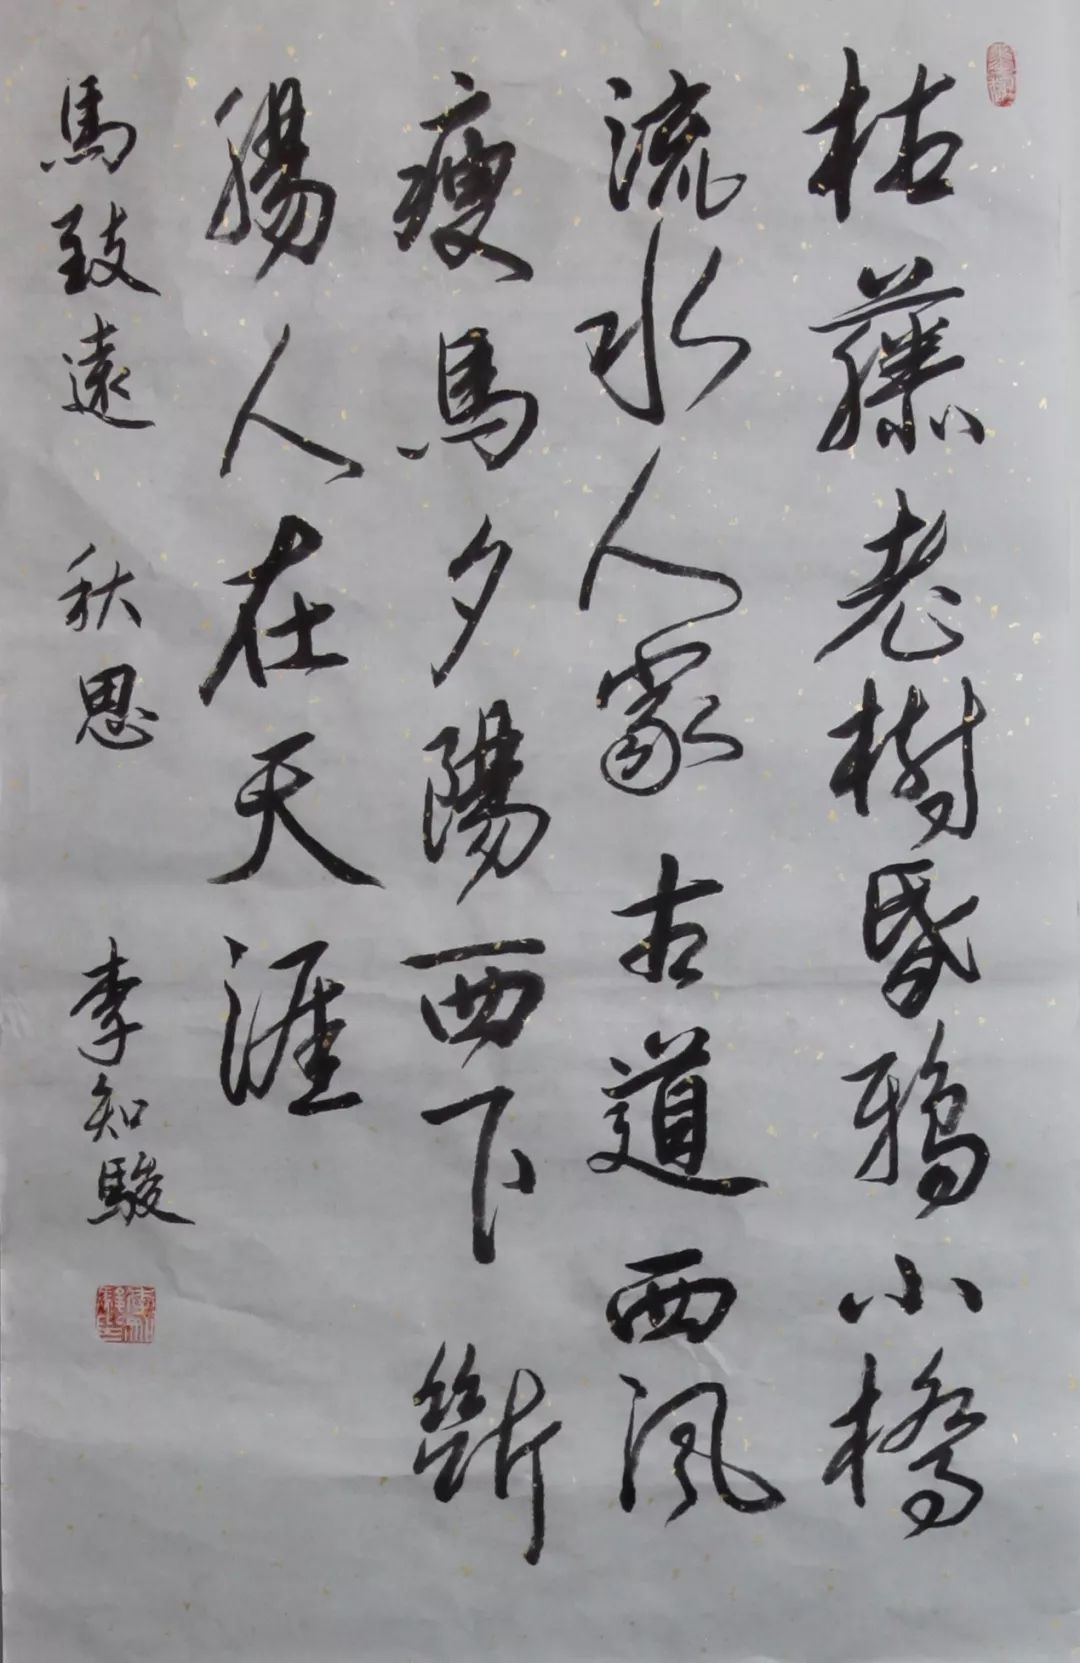 枯藤老樹昏鴉小橋
流水人家古道西風
瘦馬夕陽西下斷
腸人在天涯
馬致遠 秋思 李知駿